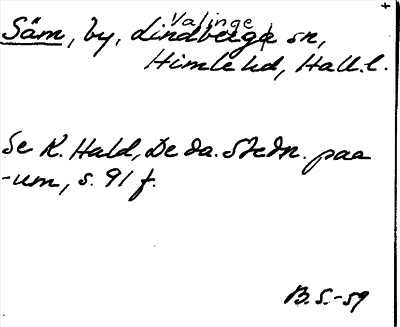 +
Valinge
Säm, by, Lindberga sn,
Himle hd, Hall. l.
Se K. Hald, De da. Stedn. paa
-um, s. 91 f.
B.S.-59